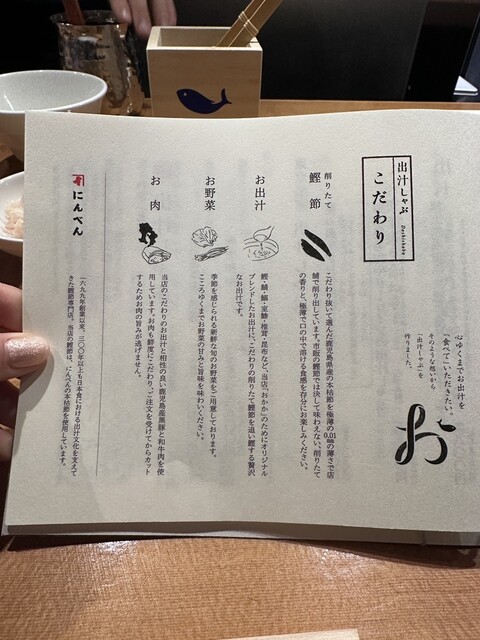 心ゆくまでお出汁を
「食べて」いただきたい。
そのような想いから
「出汁しゃぶ」を
作りました。
お
出汁しゃぶ
Dashishabu
こだわり
削りたて
鰹節
こだわり抜いて選んだ鹿児島県産の本枯節を極薄の0.01㎜の薄さで店
舗で削り出しています。市販の鰹節では決して味わえない、削りたて
の香りと、極薄で口の中で溶ける食感を存分にお楽しみください。
お出汁
鰹・鯖・鰯・宗鰹・椎茸・昆布など、当店「おかか」のためにオリジナル
ブレンドしたお出汁に、こだわりの削りたて鰹節を追い鰹する贅沢
なお出汁です。
お野菜
季節を感じられる新鮮な旬のお野菜をご用意しております。
こころゆくまでお野菜の甘みと旨味を味わいください。
お肉
当店のこだわりのお出汁と相性の良い鹿児島産黒豚と和牛肉を使
用しています。お肉も鮮度にこだわり、ご注文を受けてからカット
するためお肉の旨みが逃げません。
にんべん
一六九九年創業以来、三〇〇年以上も日本食における出汁文化を支えて
きた鰹節専門店。当店の鰹節は、にんべんの本枯節を使用しています。